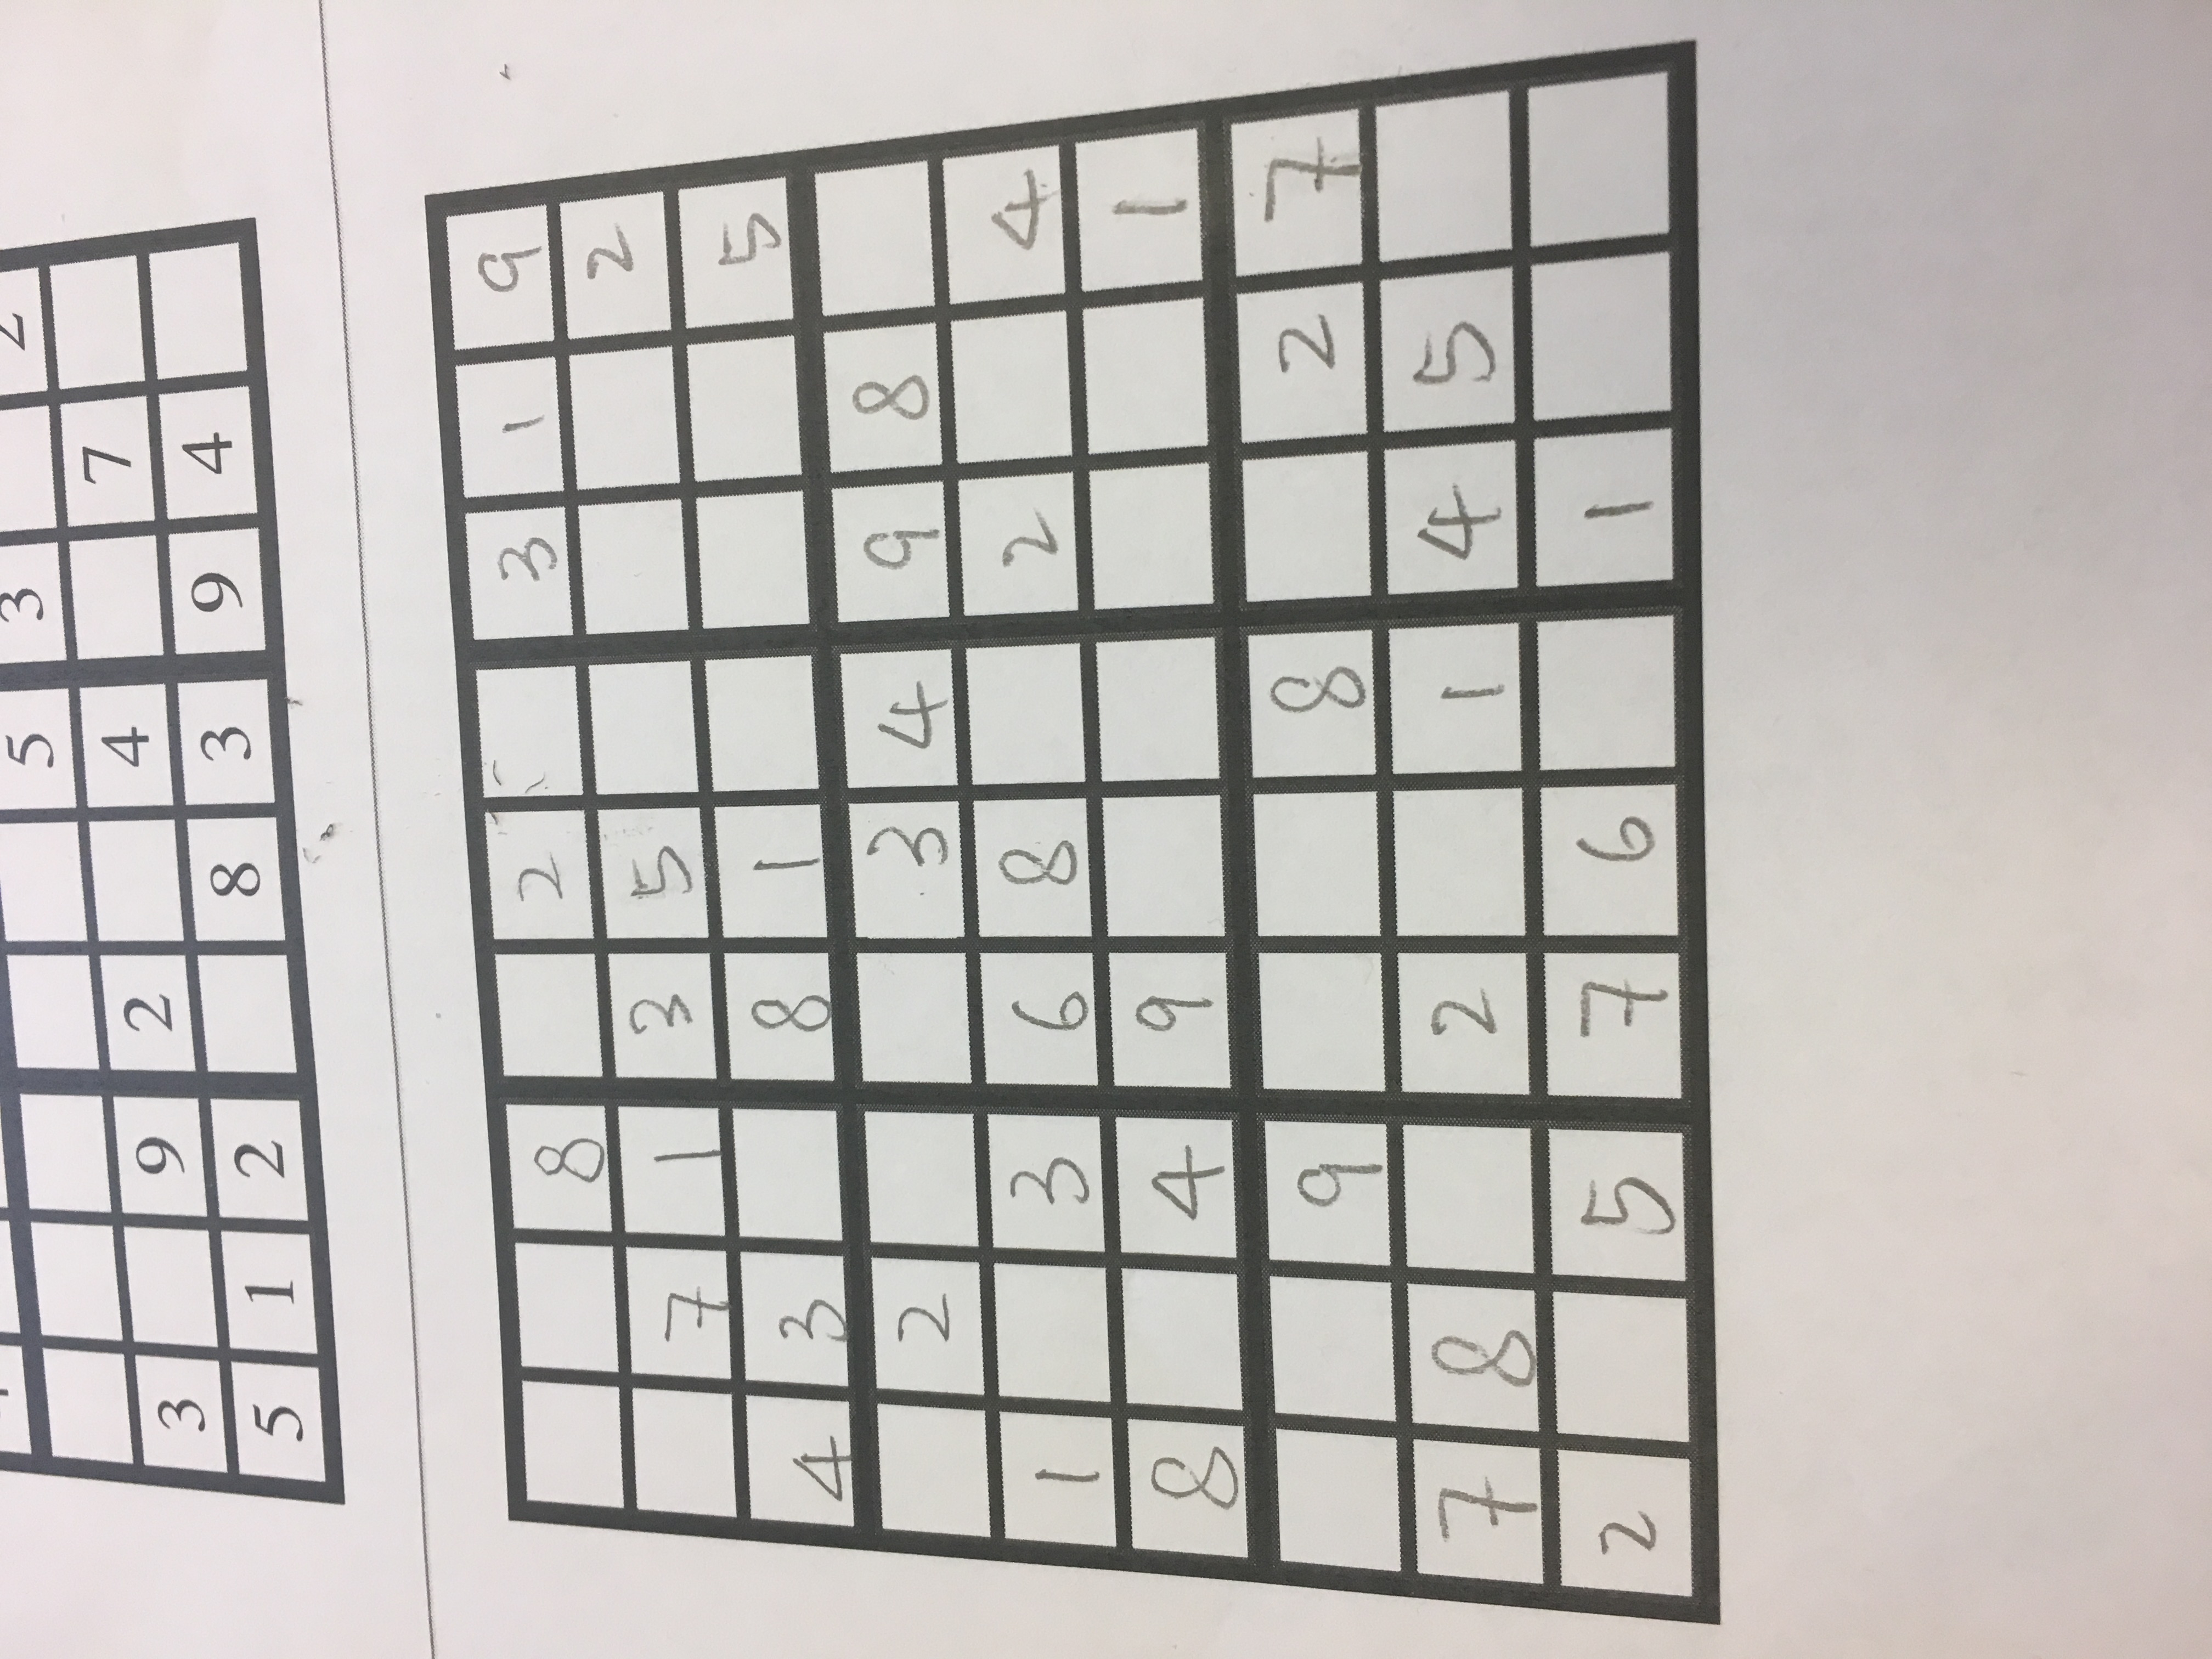 5 3 2
3 9 2 4 7
5 1 2 8 3 9 4
8 2 3 1 9
7 1 3 5 2
4 3 8 1 5
2 3 4 9 8
1 3 6 8 2 4
8 4 9 1
9 8 2 7
7 8 2 1 4 5
2 5 7 6 1